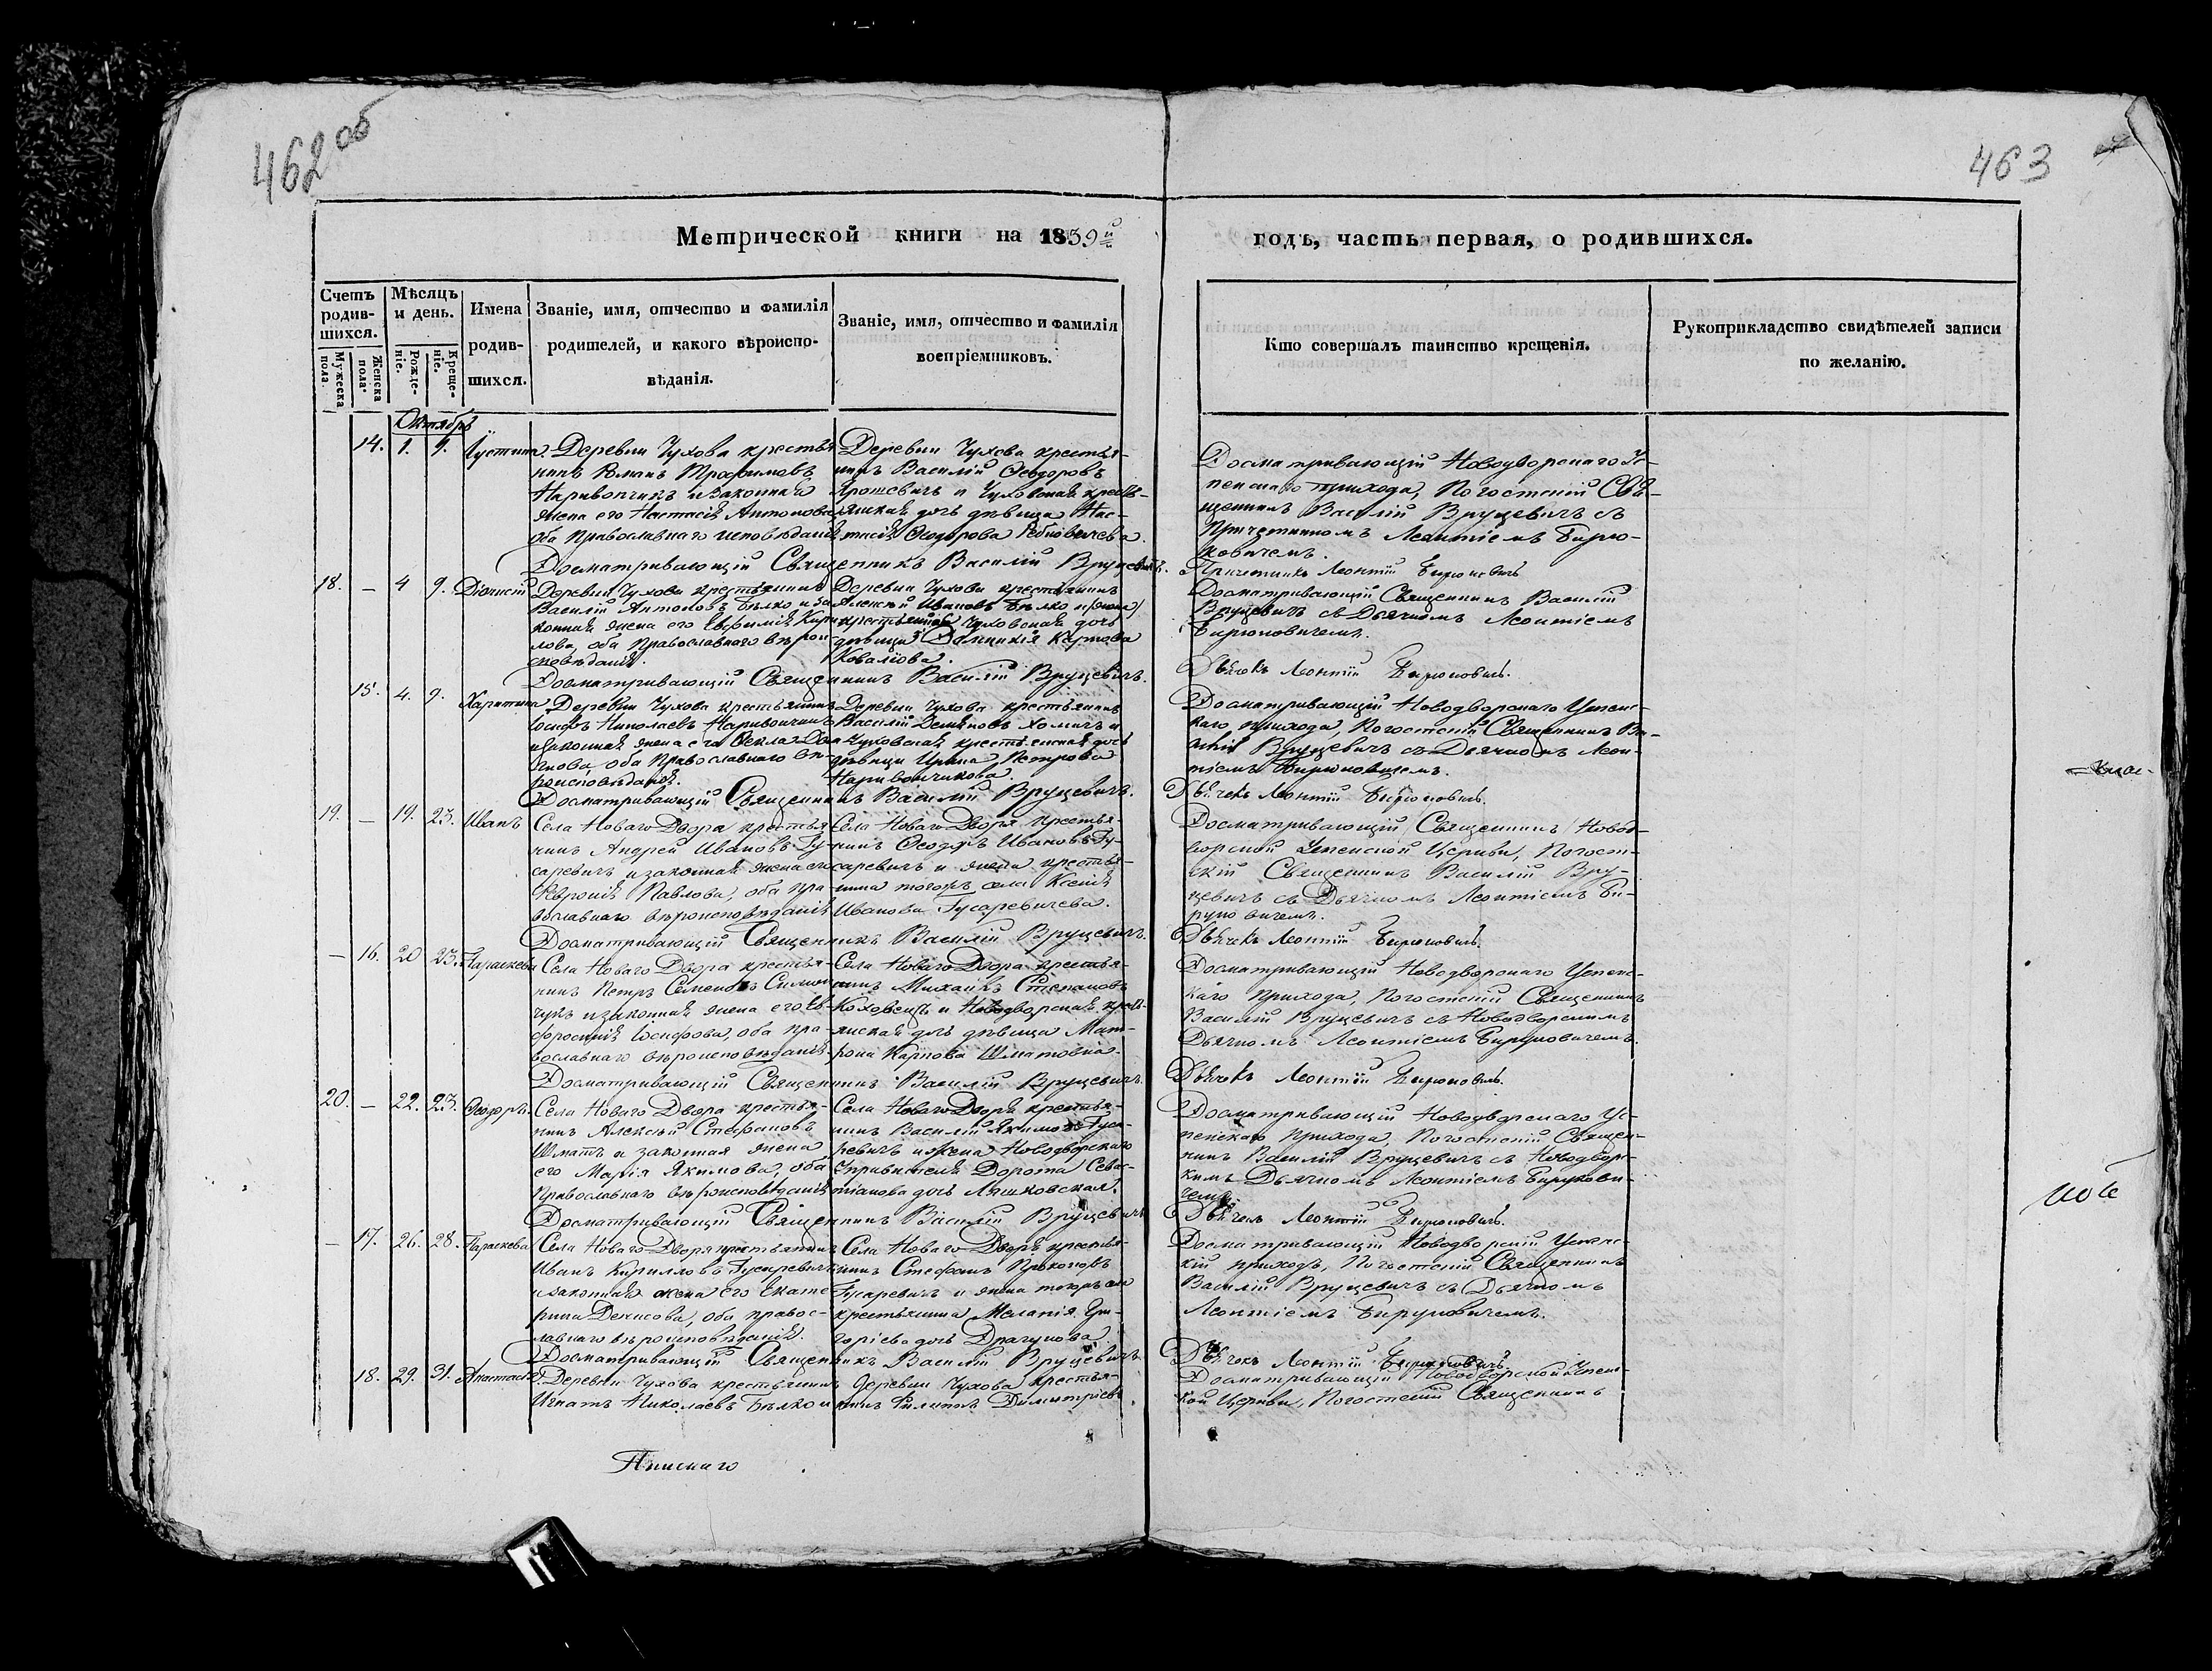 462 об
463
Метрической книги на 1839й
годъ, часть первая, о родившихся.
Счетъ родив- шихся.
Мужеска пола.
Женска пола.
Мѣсяцъ и день.
Рожде- ніе.
Креще- ніе.
Имена родив- шихся.
Званіе, имя, отчество и фамилія
родителей, и какого вѣроиспо-
вѣданія.
Званіе, имя, отчество и фамилія
воспріемниковъ.
Кто совершалъ таинство крещенія.
Рукоприкладство свидѣтелей записи
по желанію.
Октябрь
14. 1. 9. Іустина
Деревни Чухова крестья
нинъ Романъ Трофимовъ
Наривончикъ и законная
жена его Настасія Антонова
оба Православнаго исповѣданія
Деревни Чухова крестья-
нинъ Василій Ѳеодоровъ
Ярошевичъ и Чуховская крестъ-
янская дочь дѣвица Нас-
тасія Ѳеодорова
Досматривающій Новодворскаго Ус-
пенскаго прихода, Погостскій Свя-
щенникъ Василій Вруцевичъ съ
Причетникомъ Леонтіемъ Бирю-
ковичемъ.
Досматривающій Священникъ Василій Вруцевичъ.
Причетникъ Леонтій Бирюковичъ
18. — 4 9. Діонисій
Деревни Чухова крестьянинъ
Василій Антоновъ Бѣлко и за
конная жена его Евфимія Кири
лова, оба Православнаго вѣрои-
сповѣданія.
Деревни Чухова крестьянинъ
Алексѣй Ивановъ Бѣлко и
крестьянина Чуховская дочь
дѣвица Домникія Карпова
Ковалiова.
Досматривающій Священникъ Василій
Вруцевичъ съ Дьячкомъ Леонтіемъ
Бирюковичемъ.
Досматривающій Священникъ Василій Вруцевичъ.
Дьячокъ Леонтій Бирюковичъ.
15. 4. 9. Харитина
Деревни Чухова крестьянинъ
Іосифъ Николаевъ Наривончикъ
и законная жена его Ѳекла Дом
нова оба Православнаго вѣ
роисповѣданія.
Деревни Чухова крестьянинъ
Василій Демьяновъ Хомичъ и
Чуховская крестьянская дочь
дѣвица Ирина Петрова
Наривончикова.
Досматривающій Новодворскаго Успенс-
каго прихода, Погостскій Священникъ Ва-
силій Вруцевичъ съ Дьячкомъ Леон-
тіемъ Бирюковичемъ.
Досматривающій Священникъ Василій Вруцевичъ.
Дьячекъ Леонтій Бирюковичъ.
19. — 19. 23. Иванъ
Села Новаго Двора крестья
нинъ Андрей Ивановъ Гу-
саревичъ и законная жена его
Павлова, оба пра-
вославнаго вѣроисповѣданія
Села Новаго Двора крестья-
нинъ Ѳеодоръ Ивановъ Гу-
саревичъ и жена крестья-
нина тогожъ села Ксенія
Иванова Гусаревичева.
Досматривающій Священникъ Новод-
ворской Успенской Церкви, Погост-
скій Священникъ Василій Вру-
цевичъ съ Дьячкомъ Леонтіемъ Би-
рюковичемъ.
Досматривающій Священникъ Василій Вруцевичъ.
Дьячекъ Леонтій Бирюковичъ.
— 16. 20 23. Параскева
Села Новаго Двора крестья-
нинъ Петръ Семеновъ Симон
чукъ и законная жена его Ев-
фросинія Іосифова, оба пра-
вославнаго вѣроисповѣданія
Села Новаго Двора крестья-
нинъ Михаилъ Степановъ
Коховецъ и Новодворская крестъ-
янская дочь дѣвица Мат-
рона Карпова Шматовна.
Досматривающій Новодворскаго Успенс-
каго прихода, Погостскій Священникъ
Василій Вруцевичъ съ Новодворскимъ
Дьячкомъ Леонтіемъ Бирюковичемъ.
Досматривающій Священникъ Василій Вруцевичъ.
Дьячекъ Леонтій Бирюковичъ.
20. — 22. 23. Ѳеодоръ
Села Новаго Двора крестья-
нинъ Алексѣй Стефановъ
Шматъ и законная жена
его Марія Якимова, оба
Православнаго вѣроисповѣданія
Села Новаго Двора крестья-
нинъ Василій Якимовъ Гуса-
ревичъ и жена Новодворскаго
Управителя Дорота Севас-
тіанова дочь Ляшковская.
Досматривающій Новодворскаго Ус-
пенскаго прихода, Погостскій Священ-
никъ Василій Вруцевичъ съ Новодворс-
кимъ Дьячкомъ Леонтіемъ Бирюкови-
чемъ.
Досматривающій Священникъ Василій Вруцевичъ
Дьячекъ Леонтій Бирюковичъ.
— 17. 26. 28. Параскева
Села Новаго Двора крестьянинъ
Иванъ Кирилловъ Гусаревичъ
и законная жена его Екате
рина Денисова, оба правос-
лавнаго вѣроисповѣданія.
Села Новаго Двора крестья-
нинъ Стефанъ Прокоповъ
Гусаревичъ и жена тогожъ села
крестьянина Меланія Гри-
горіева дочь Драгунова.
Досматривающій Новодворскій Успенс-
кій приходъ, Погостскій Священникъ
Василій Вруцевичъ съ Дьячкомъ
Леонтіемъ Бирюковичемъ.
Досматривающій Священникъ Василій Вруцевичъ
Дьячекъ Леонтій Бирюковичъ.
18. 29. 31. Анастасія
Деревни Чухова крестьянинъ
Игнатъ Николаевъ Бѣлко и
Деревни Чухова крестья-
нинъ Филиппъ Димитріевъ
Досматривающій Новодворской Успенс-
кой Церкви, Погостскій Священникъ